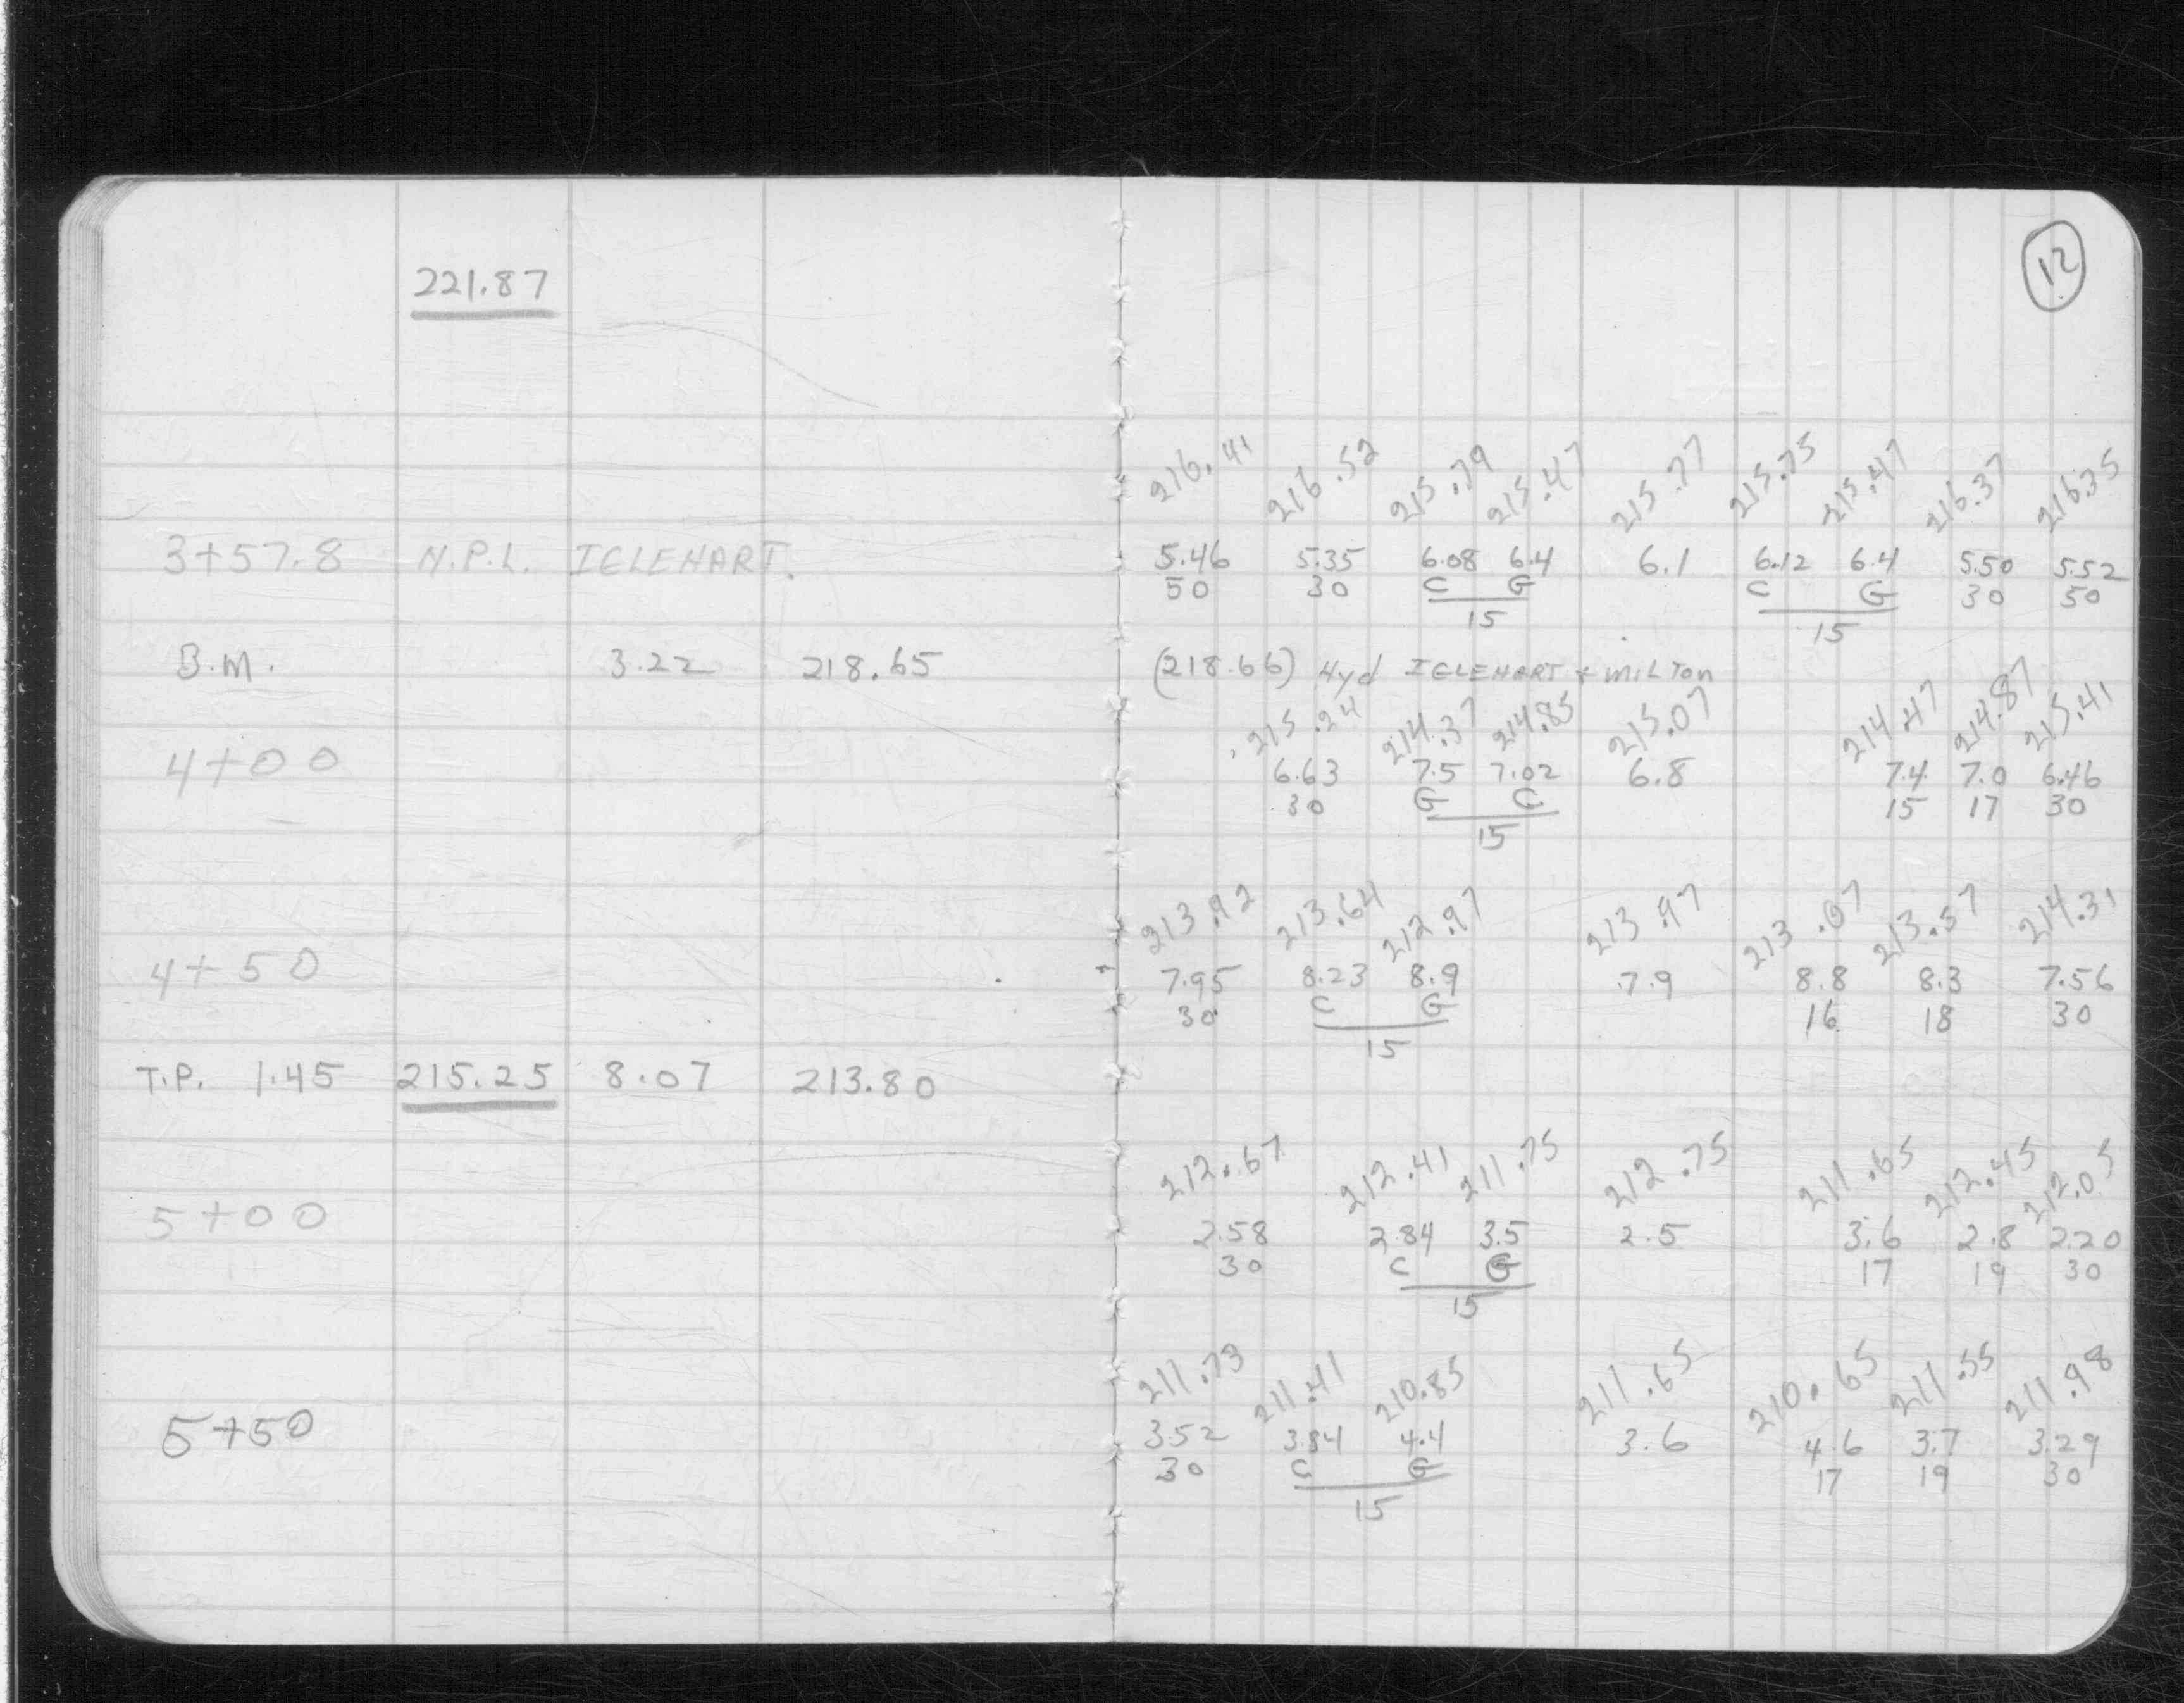 12
221.87
216.41 216.52 215.79 215.47 215.77 215.75 215.47 216.37 216.35
3+57.8 N.P.L. IGLEHART. 5.46 5.35 6.08 6.4 6.1 6.12 6.4 5.50 5.52
50 30 C G C G 30 50
15 15
B.M. 3.22 218.65 (218.66) Hyd IGLEHART & MILTON
215.24 214.37 214.85 215.07 214.47 214.87 215.41
4+00 6.63 7.5 7.02 6.8 7.4 7.0 6.46
30 G C 15 17 30
15
213.92 213.64 212.97 213.97 213.07 213.57 214.31
4+50 7.95 8.23 8.9 7.9 8.8 8.3 7.56
30 C G 16 18 30
15
T.P. 1.45 215.25 8.07 213.80
212.67 212.41 211.75 212.75 211.65 212.45 212.05
5+00 2.58 2.84 3.5 2.5 3.6 2.8 2.20
30 C G 17 19 30
15
211.73 211.41 210.85 211.65 210.65 211.55 211.98
5+50 3.52 3.84 4.4 3.6 4.6 3.7 3.29
30 C G 17 19 30
15